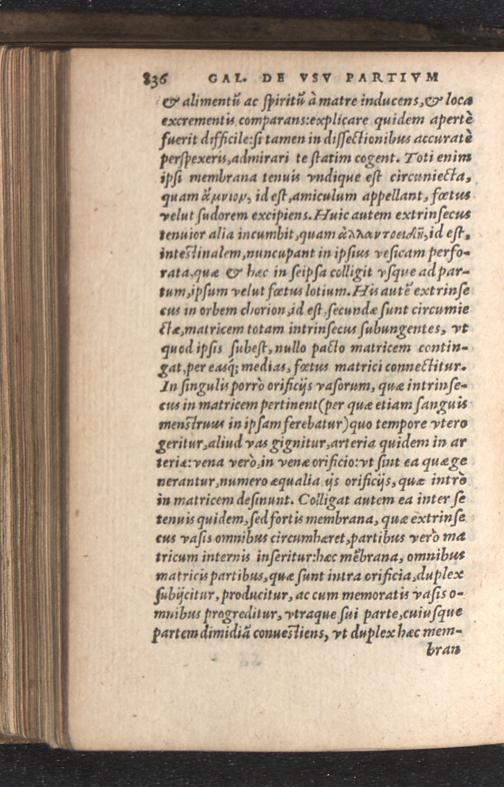 836 GAL. DE VSV PARTIVM
& alimentū ac ſpiritū à matre inducens, & loca
excrementis comparans: explicare quidem apertè
fuerit difficile: ſi tamen in diſſectionibus accuratè
perſpexeris, admirari te ſtatim cogent. Toti enim
ipſi membrana tenuis vndique eſt circuniecta,
quam ἄμνιον, id eſt, amiculum appellant, fœtus
velut ſudorem excipiens. Huic autem extrinſecus
tenuior alia incumbit, quam ἀλλαντοειδῆ, id eſt,
inteſtinalem, nuncupant in ipſius veſicam perfo-
rata, quæ & hæc in ſeipſa colligit vſque ad par-
tum, ipſum velut fœtus lotium. His autē extrinſe
cus in orbem chorion, id eſt, ſecundæ ſunt circumie
ctæ, matricem totam intrinſecus ſubungentes, vt
quod ipſis ſubeſt, nullo pacto matricem contin-
gat, per easq; medias, fœtus matrici connectitur.
In ſingulis porrò orificijs vaſorum, quæ intrinſe-
cus in matricem pertinent (per quæ etiam ſanguis
menſtruus in ipſam ferebatur) quo tempore vtero
geritur, aliud vas gignitur, arteria quidem in ar
teriæ: vena verò, in venæ orificio: vt ſint ea quæ ge
nerantur, numero æqualia ijs orificijs, quæ intrò
in matricem deſinunt. Colligat autem ea inter ſe
tenuis quidem, ſed fortis membrana, quæ extrinſe
cus vaſis omnibus circumhæret, partibus verò ma
tricum internis inſeritur: hæc mēbrana, omnibus
matricis partibus, quæ ſunt intra orificia, duplex
ſubijcitur, producitur, ac cum memoratis vaſis o-
mnibus progreditur, vtraque ſui parte, cuiuſque
partem dimidiā conueſtiens, vt duplex hæc mem-
bran